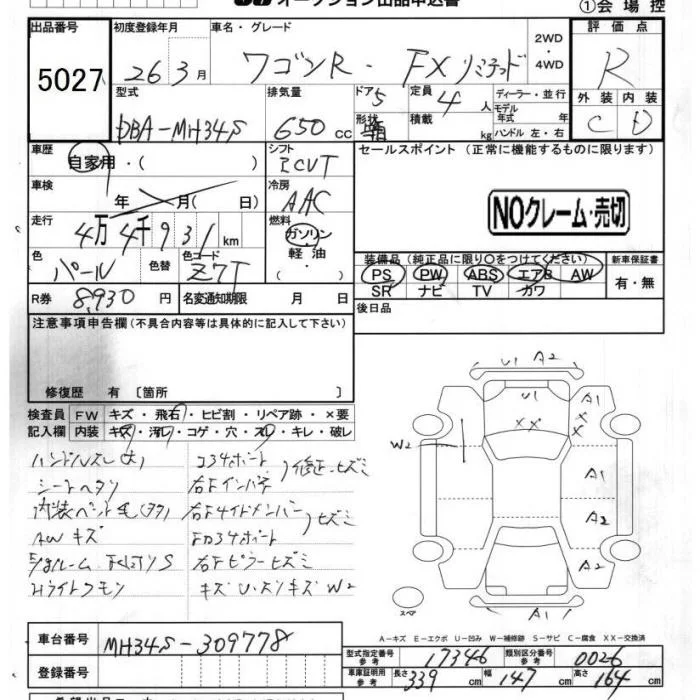 オークション出品申込書
①会場控
出品番号 初度登録年月 車名・グレード 2WD 評価点
5027 26年3月 ワゴンR - FXリミテッド 4WD R
型式 排気量 ドア 5 定員 4人 ディーラー・並行 外装 内装
DBA-MH34S 650cc 形状 積載 kg モデル年式 年 ハンドル 左・右 C D
車歴 自家用・( ) シフト ICVT セールスポイント (正常に機能するものに限ります)
車検 年 月( 日) 冷房 AAC NOクレーム・売切
走行 4万4千931km 燃料 ガソリン
色 パール 色替 色コード Z7T 軽油・( )
装備品 (純正品に限り○をつけてください) 新車保証書
PS PW ABS エアB AW 有・無
SR ナビ TV カワ
R券 8,930円 名変通知期限 月 日 後日品
注意事項申告欄 (不具合内容等は具体的に記入して下さい)
修復歴 有 〔箇所 〕
検査員 FW キズ・飛石・ヒビ割・リペア跡・×要
記入欄 内装 キズ・汚レ・コゲ・穴・スレ・キレ・破レ
ハンドルスレ(大) コ34ポート
シートヘタリ 右Fインパネ 修正・ヒズミ
右Fサイドメンバー
AWキズ ヒズミ
右Fピラーヒズミ
W2
U1 A2
U1
A1
XX
X
X
W2
A1
A2
A2
A1
スペア
A-キズ E-エクボ U-凹み W-補修跡 S-サビ C-腐食 XX-交換済
車台番号 MH34S-309778
登録番号
型式指定番号 参考 17346 類別区分番号 参考 0026
車庫証明用 参考 長さ 339cm 幅 147cm 高さ 164cm